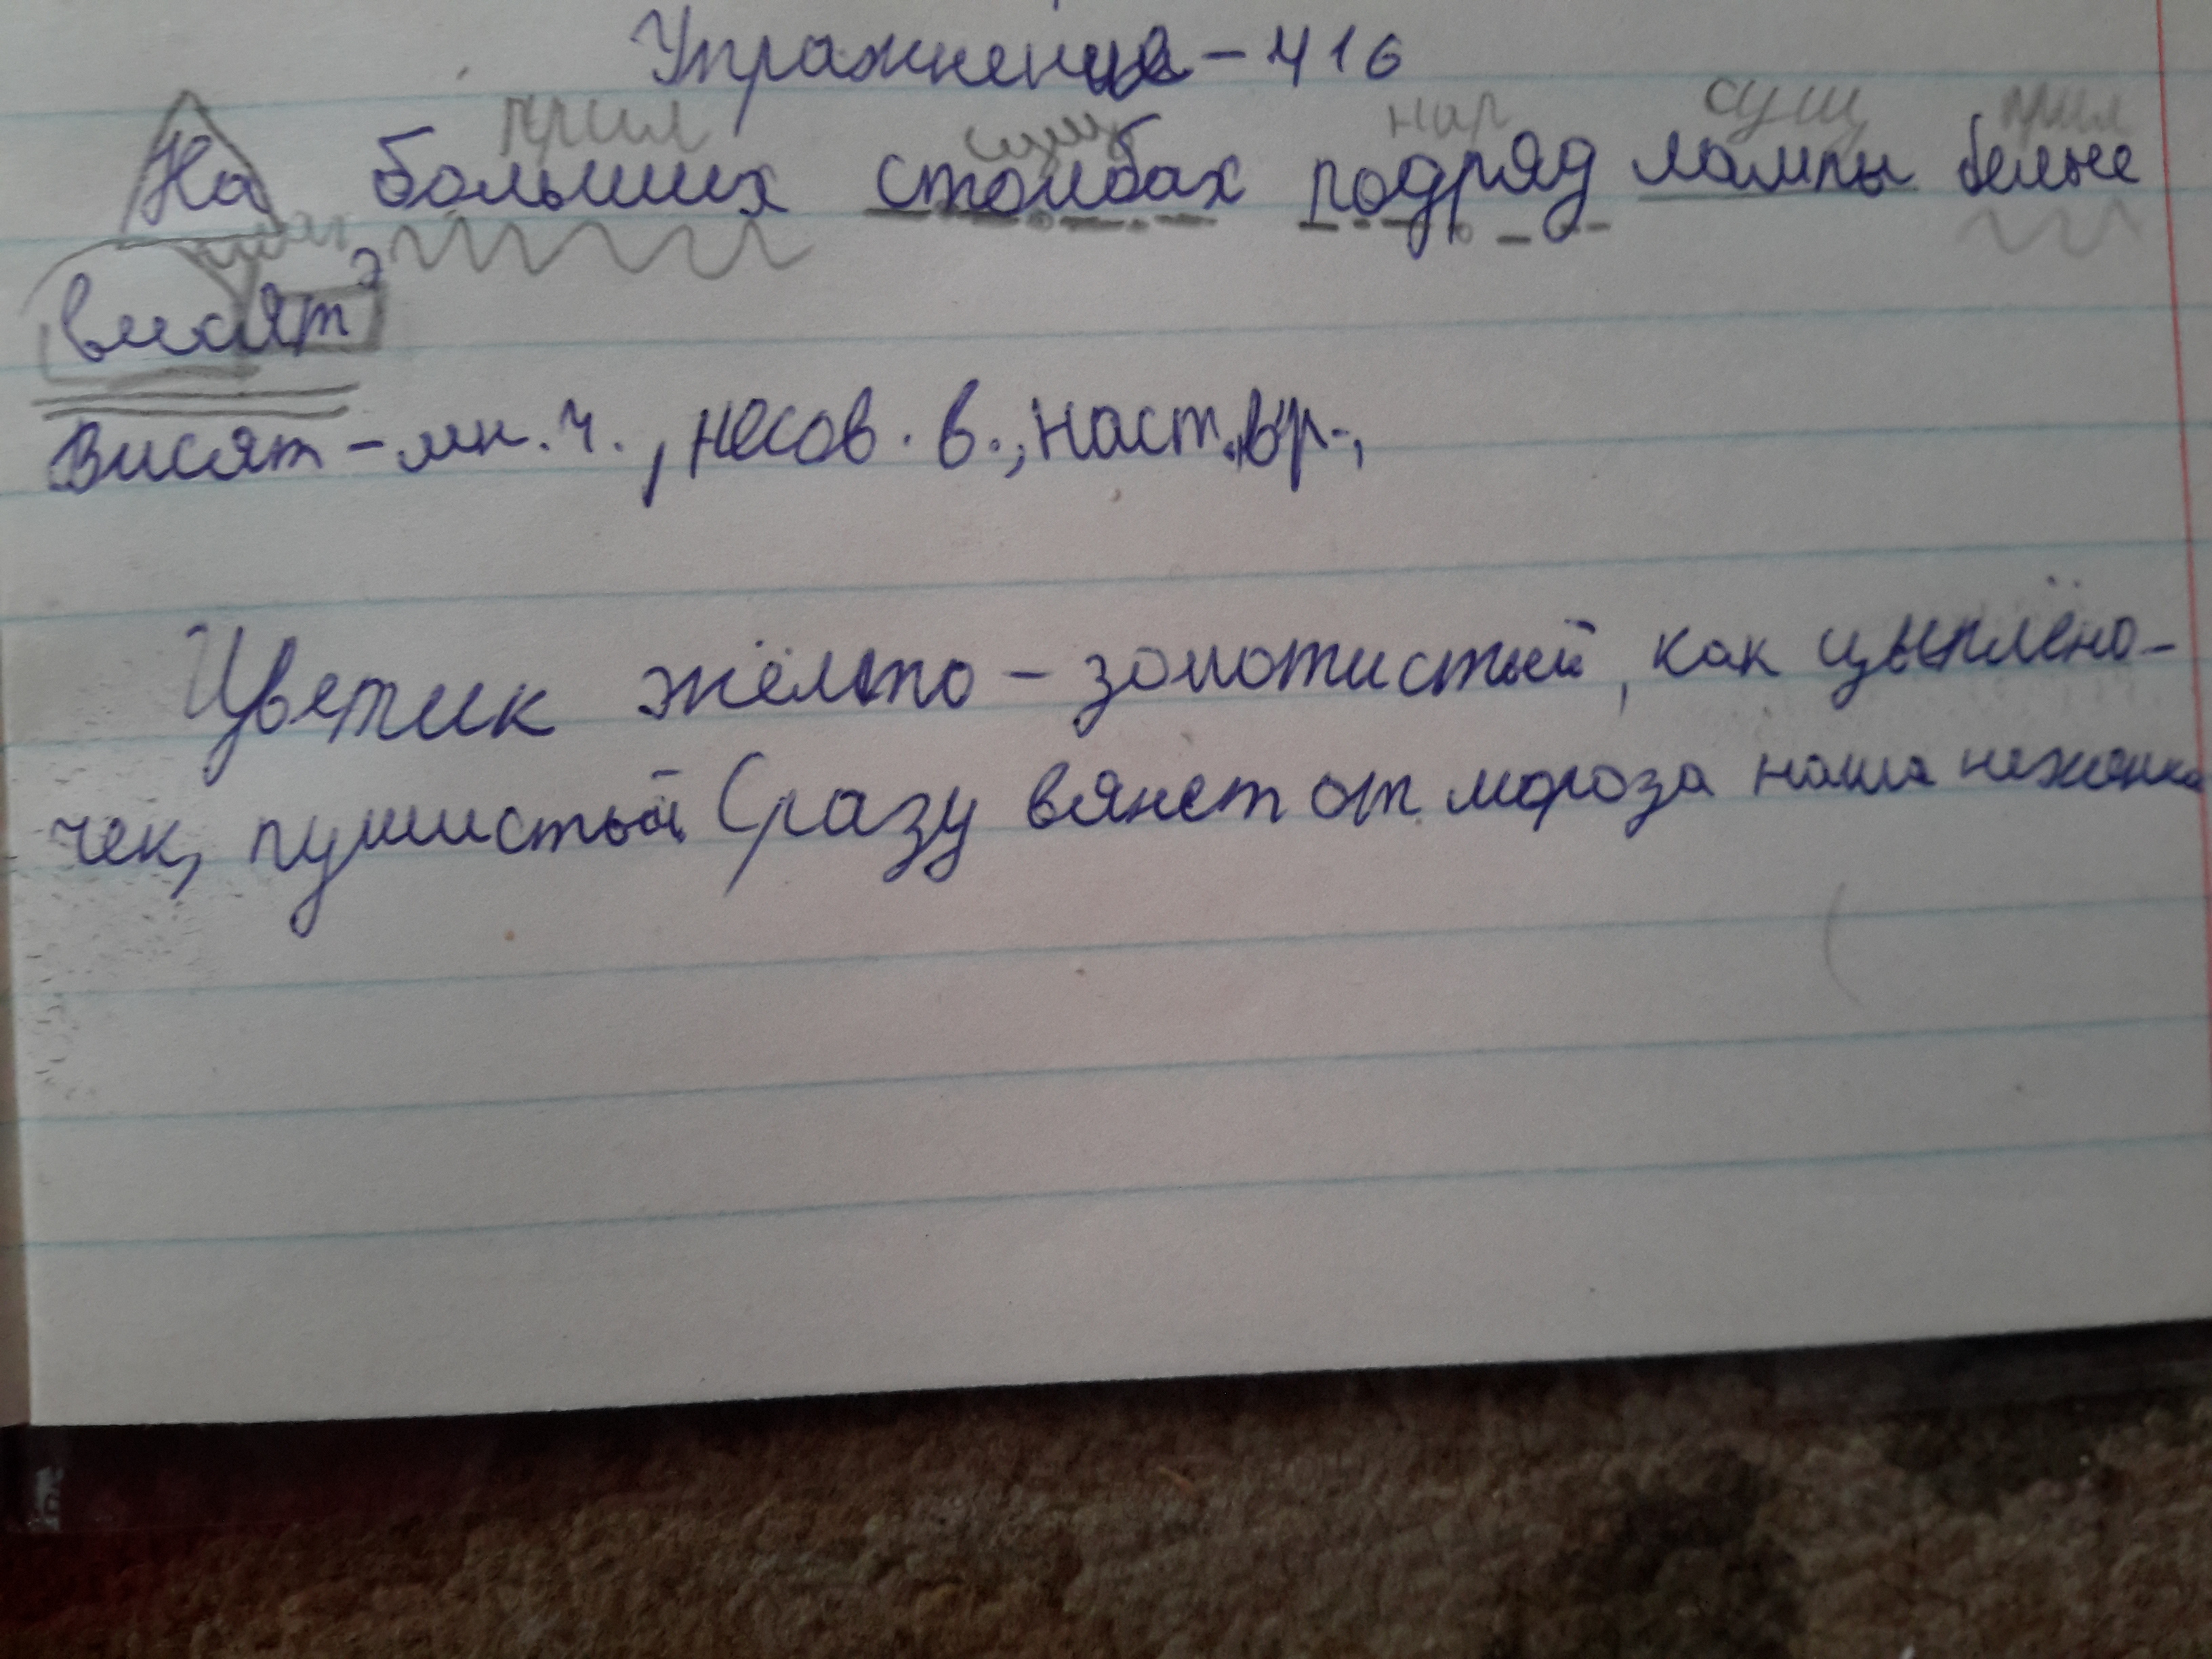 Упражнение - 416
прил сущ нар сущ прил
На больших столбах подряд лампы белые
глаг
висят э
висят - мн. ч., несов. в., наст. вр.,
Цветик жёлто - золотистый, как цыплёно-
чек, пушистый Сразу вянет от мороза наша неженка